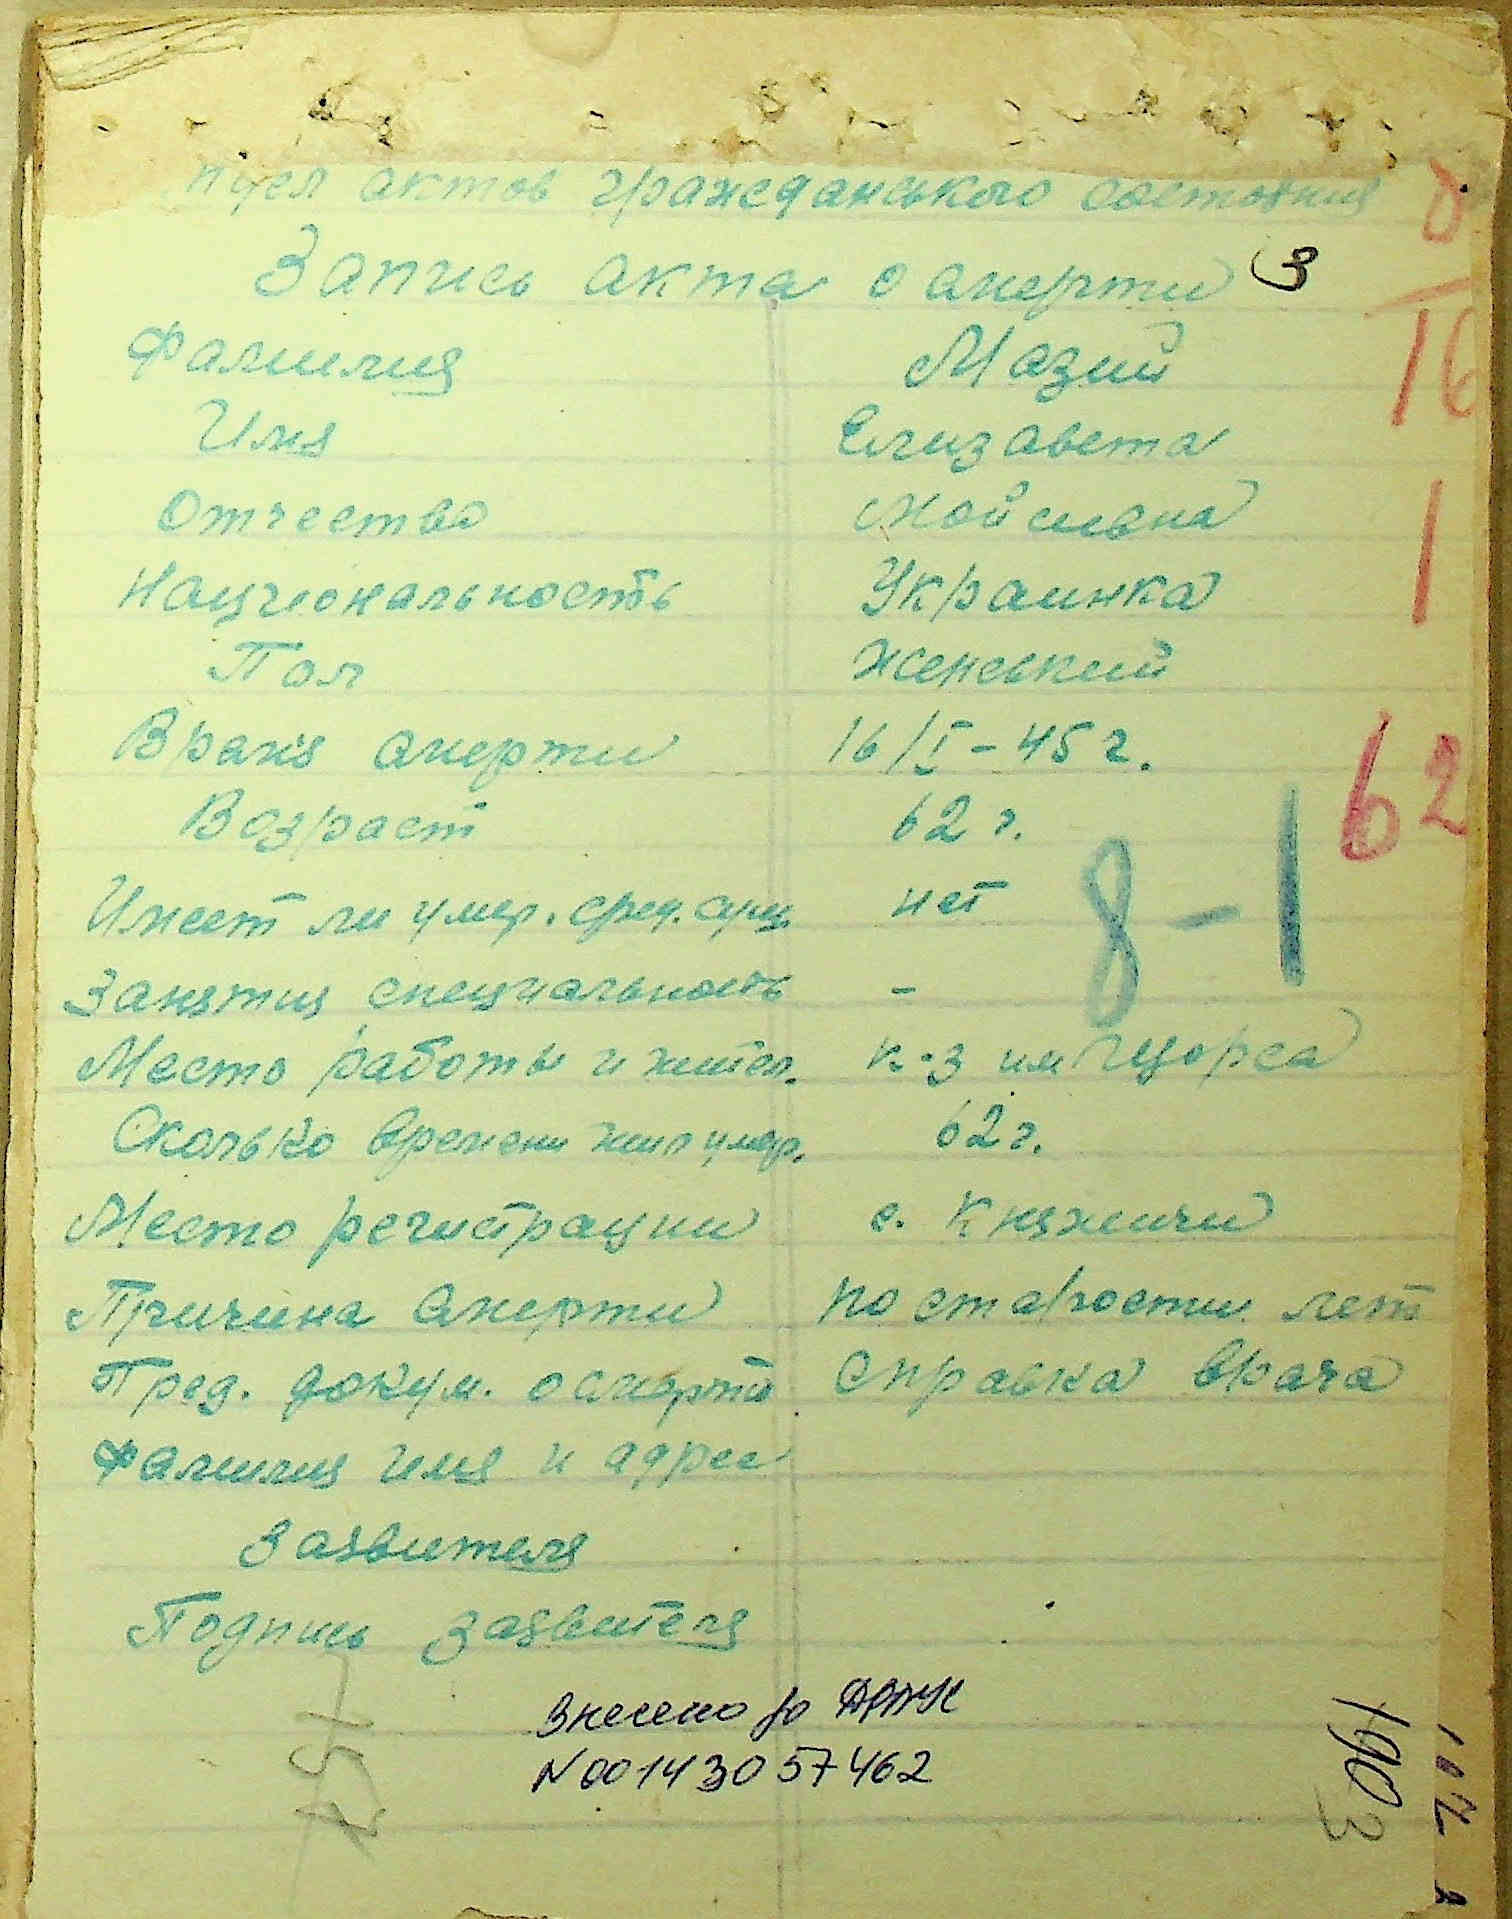 актов гражданського состояния
Запись акта о смерти 3
Фамилия Мазий
Имя Елизавета
Отчество Мойсивна
Национальность Украинка
Пол женський
Время смерти 16/I-45 г.
Возраст 62 г.
Имеет ли умер. сред. нет
Занятия специальность -
Место работы и жител. к-з им Щорса
Сколько времени жил умер. 62 г.
Место регистрации с. Княжичи
Причина смерти по старости лет
Пред. докум. о смерти справка врача
Фамилия имя и адрес
заявителя
Подпись заявителя
16
1
62
8-1
Внесено до ДРАЦС
N00143057462
157
190
3